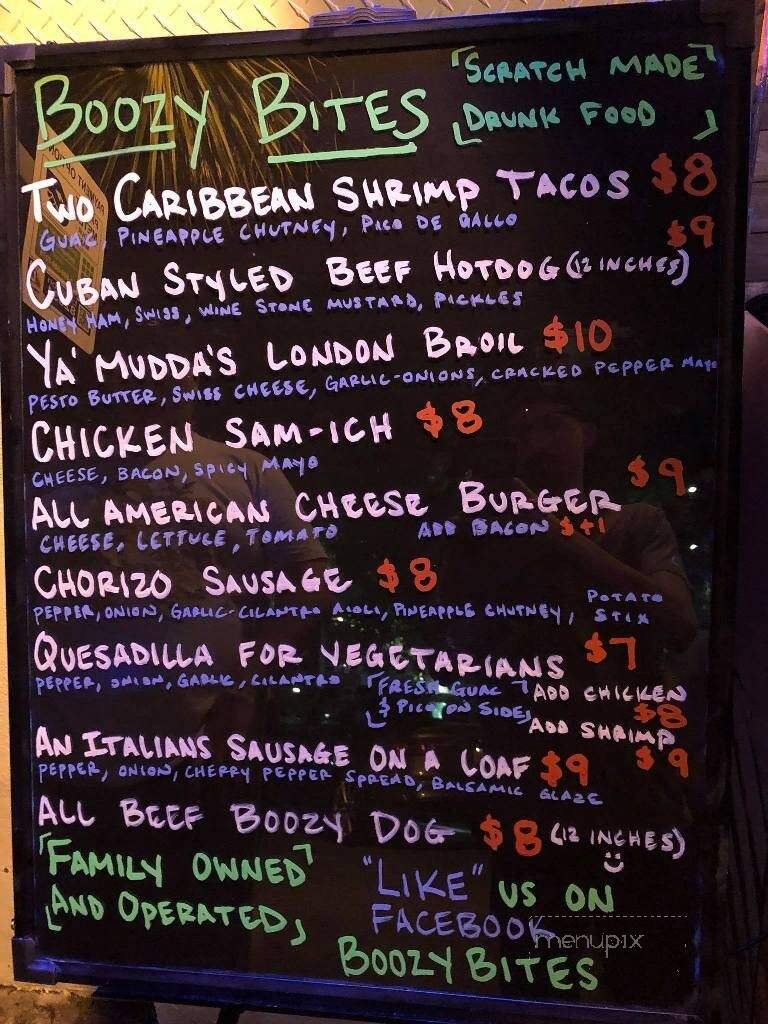 BOOZY BITES
SCRATCH MADE
DRUNK FOOD
TWO CARIBBEAN SHRIMP TACOS $8
GUAC, PINEAPPLE CHUTNEY, PICO DE GALLO
$9
CUBAN STYLED BEEF HOTDOG (12 INCHES)
HONEY HAM, SWISS, WINE STONE MUSTARD, PICKLES
YA' MUDDA'S LONDON BROIL $10
PESTO BUTTER, SWISS CHEESE, GARLIC-ONIONS, CRACKED PEPPER MAYO
CHICKEN SAM-ICH $8
CHEESE, BACON, SPICY MAYO
$9
ALL AMERICAN CHEESE BURGER
CHEESE, LETTUCE, TOMATO ADD BACON $+1
CHORIZO SAUSAGE $8
PEPPER, ONION, GARLIC-CILANTRO AIOLI, PINEAPPLE CHUTNEY, POTATO
STIX
QUESADILLA FOR VEGETARIANS $7
PEPPER, ONION, GARLIC, CILANTRO
FRESH GUAC
& PICO ON SIDE
ADD CHICKEN
$8
ADD SHRIMP
$9
AN ITALIANS SAUSAGE ON A LOAF $9
PEPPER, ONION, CHERRY PEPPER SPREAD, BALSAMIC GLAZE
ALL BEEF BOOZY DOG $8 (12 INCHES)
FAMILY OWNED
AND OPERATED
"LIKE" US ON
FACEBOOK
BOOZY BITES
menupix